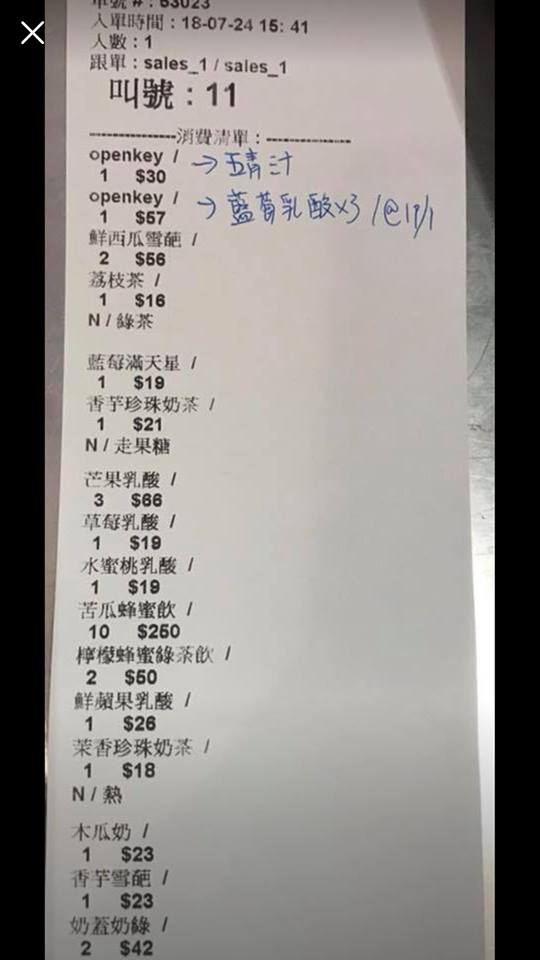 單號 # : 53023
入單時間 : 18-07-24 15: 41
人數 : 1
跟單 : sales_1 / sales_1
叫號 : 11
---------------消費清單 : ---------------
openkey / → 五青汁
1 $30
openkey / → 藍莓乳酸x3 /@19/1
1 $57
鮮西瓜雪葩 /
2 $56
荔枝茶 /
1 $16
N / 綠茶
藍莓滿天星 /
1 $19
香芋珍珠奶茶 /
1 $21
N / 走果糖
芒果乳酸 /
3 $66
草莓乳酸 /
1 $19
水蜜桃乳酸 /
1 $19
苦瓜蜂蜜飲 /
10 $250
檸檬蜂蜜綠茶飲 /
2 $50
鮮蘋果乳酸 /
1 $26
茉香珍珠奶茶 /
1 $18
N / 熱
木瓜奶 /
1 $23
香芋雪葩 /
1 $23
奶蓋奶綠 /
2 $42